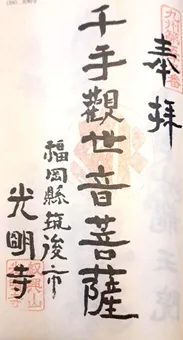 奉拝
千手觀世音菩薩
福岡縣筑後市
光明寺